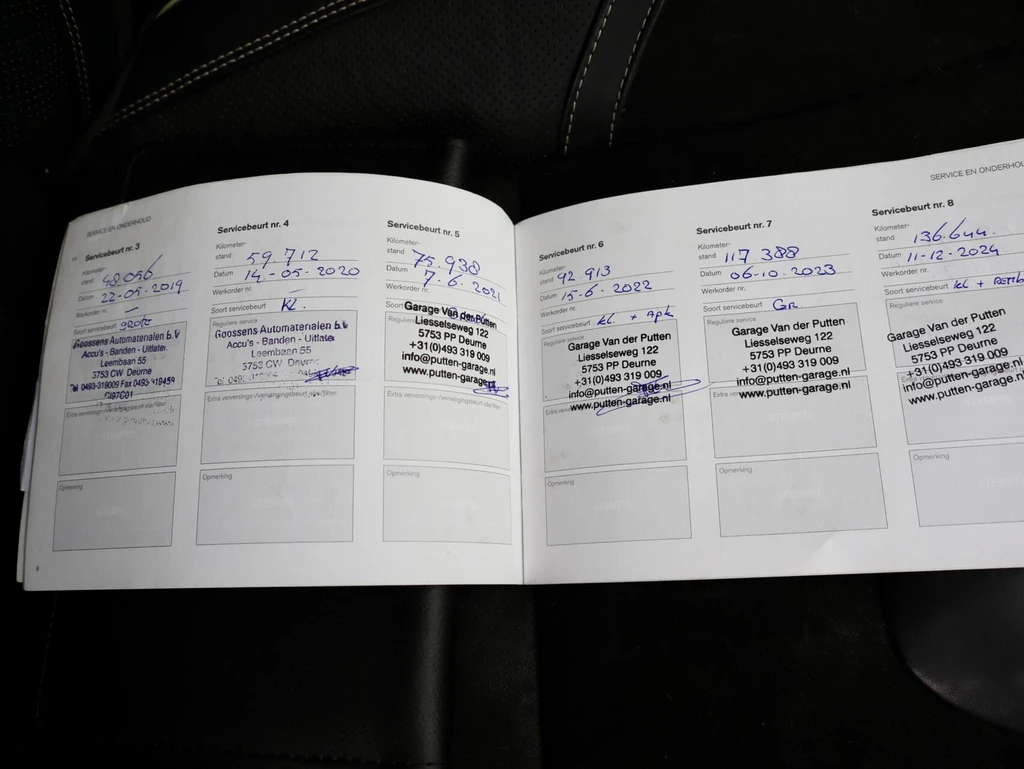 SERVICE EN ONDERHOUD
Servicebeurt nr. 3
Kilometer-
stand 48.056
Datum 22-05-2019
Werkorder nr. –
Soort servicebeurt grote
Goossens Automaterialen b.v
Accu's - Banden - Uitlaten
Leembaan 55
5753 CW Deurne
Tel 0493-319009 Fax 0493-319459
Extra verversings-/vervangingsbeurt vls/filter:
Opmerking
6
Servicebeurt nr. 4
Kilometer-
stand 59.712
Datum 14-05-2020
Werkorder nr. –
Soort servicebeurt KL.
Reguliere service
Goossens Automaterialen b.v
Accu's - Banden - Uitlaten
Leembaan 55
5753 CW Deurne
Extra verversings-/vervangingsbeurt vls/filter:
Opmerking
Servicebeurt nr. 5
Kilometer-
stand 75.938
Datum 7.6.2021
Werkorder nr.
Soort
Garage Van der Putten
Liesselseweg 122
5753 PP Deurne
+31(0)493 319 009
info@putten-garage.nl
www.putten-garage.nl
Extra verversings-/vervangingsbeurt vls/filter:
Opmerking
SERVICE EN ONDERHOU
Servicebeurt nr. 6
Kilometer-
stand 92.913
Datum 15-6.2022
Werkorder nr.
Soort servicebeurt KL. + Apk
Garage Van der Putten
Liesselseweg 122
5753 PP Deurne
+31(0)493 319 009
info@putten-garage.nl
www.putten-garage.nl
Opmerking
Servicebeurt nr. 7
Kilometer-
stand 117 388
Datum 06-10.2023
Werkorder nr.
Soort servicebeurt Gr.
Reguliere service
Garage Van der Putten
Liesselseweg 122
5753 PP Deurne
+31(0)493 319 009
info@putten-garage.nl
www.putten-garage.nl
Opmerking
Servicebeurt nr. 8
Kilometer-
stand 136.644
Datum 11-12-2024
Werkorder nr.
Soort servicebeurt KL +
Reguliere service
Garage Van der Putten
Liesselseweg 122
5753 PP Deurne
+31(0)493 319 009
info@putten-garage.nl
www.putten-garage.nl
Opmerking